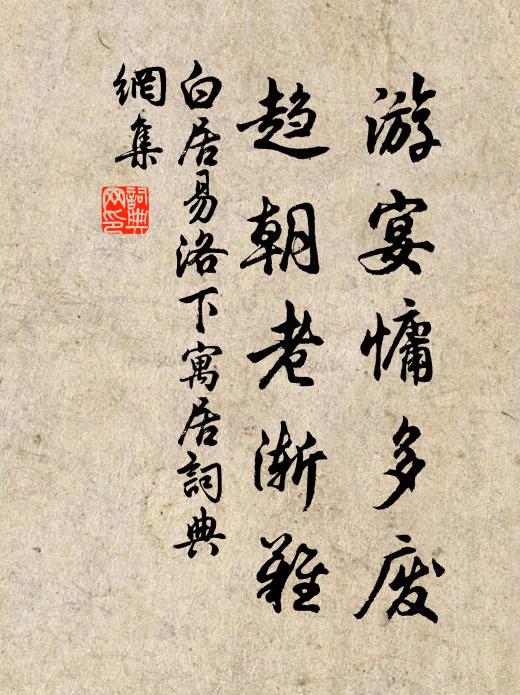 游宴慵多废
趋朝老渐难
白居易洛下寓居詞典
網集
詞典
网印